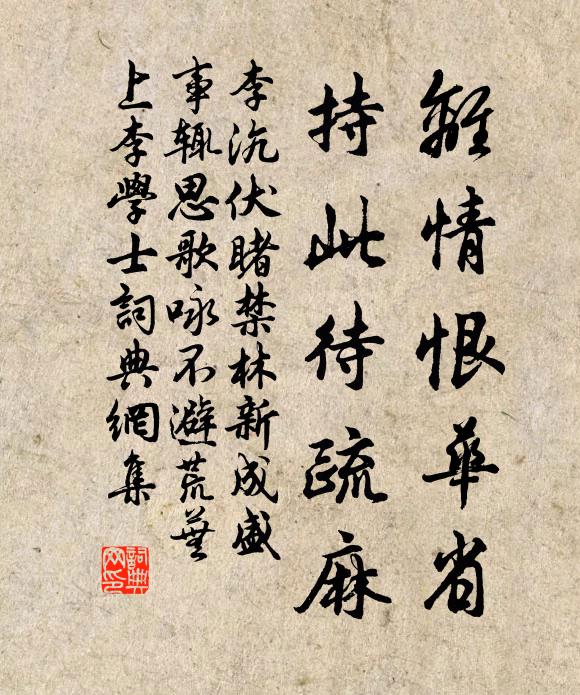 離情恨華省
持此待疏麻
李沆伏睹禁林新成盛
事輒思歌咏不避荒蕪
上李學士詞典網集
詞典網印